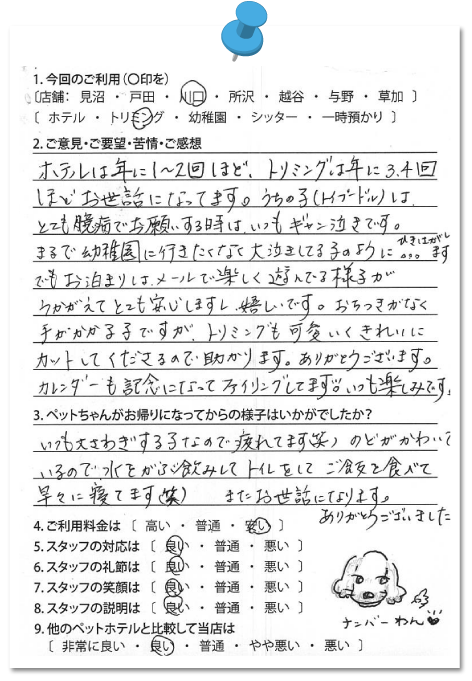 1. 今回のご利用(〇印を)
〔店舗： 見沼 ・ 戸田 ・ 川口 ・ 所沢 ・ 越谷 ・ 与野 ・ 草加 〕
〔 ホテル ・ トリミング ・ 幼稚園 ・ シッター ・ 一時預かり 〕
2. ご意見・ご要望・苦情・ご感想
ホテルは年に1〜2回ほど、トリミングは年に3.4回
ほどお世話になってます。うちの子(トイプードル)は、
とても臆病でお願いする時は、いつもギャン泣きです。
まるで幼稚園に行きたくなく大泣きしてる子のように ひきはがし。。。ます
でもお泊まりは、メールで楽しく遊んでる様子が
うかがえてとても安心しますし、嬉しいです。おちつきがなく
手がかかる子ですが、トリミングも可愛いくきれいに
カットしてくださるので助かります。ありがとうございます。
カレンダーも記念になってファイリングしてます。いつも楽しみです。
3. ペットちゃんがお帰りになってからの様子はいかがでしたか？
いつも大さわぎする子なので疲れてます(笑) のどがかわいて
いるので水をがぶ飲みして トイレをして ご飯を食べて
早々に寝てます(笑) またお世話になります。
ありがとうございました
4. ご利用料金は 〔 高い ・ 普通 ・ 安い 〕
5. スタッフの対応は 〔 良い ・ 普通 ・ 悪い 〕
6. スタッフの礼節は 〔 良い ・ 普通 ・ 悪い 〕
7. スタッフの笑顔は 〔 良い ・ 普通 ・ 悪い 〕
8. スタッフの説明は 〔 良い ・ 普通 ・ 悪い 〕
ナンバーわん
9. 他のペットホテルと比較して当店は
〔 非常に良い ・ 良い ・ 普通 ・ やや悪い ・ 悪い 〕